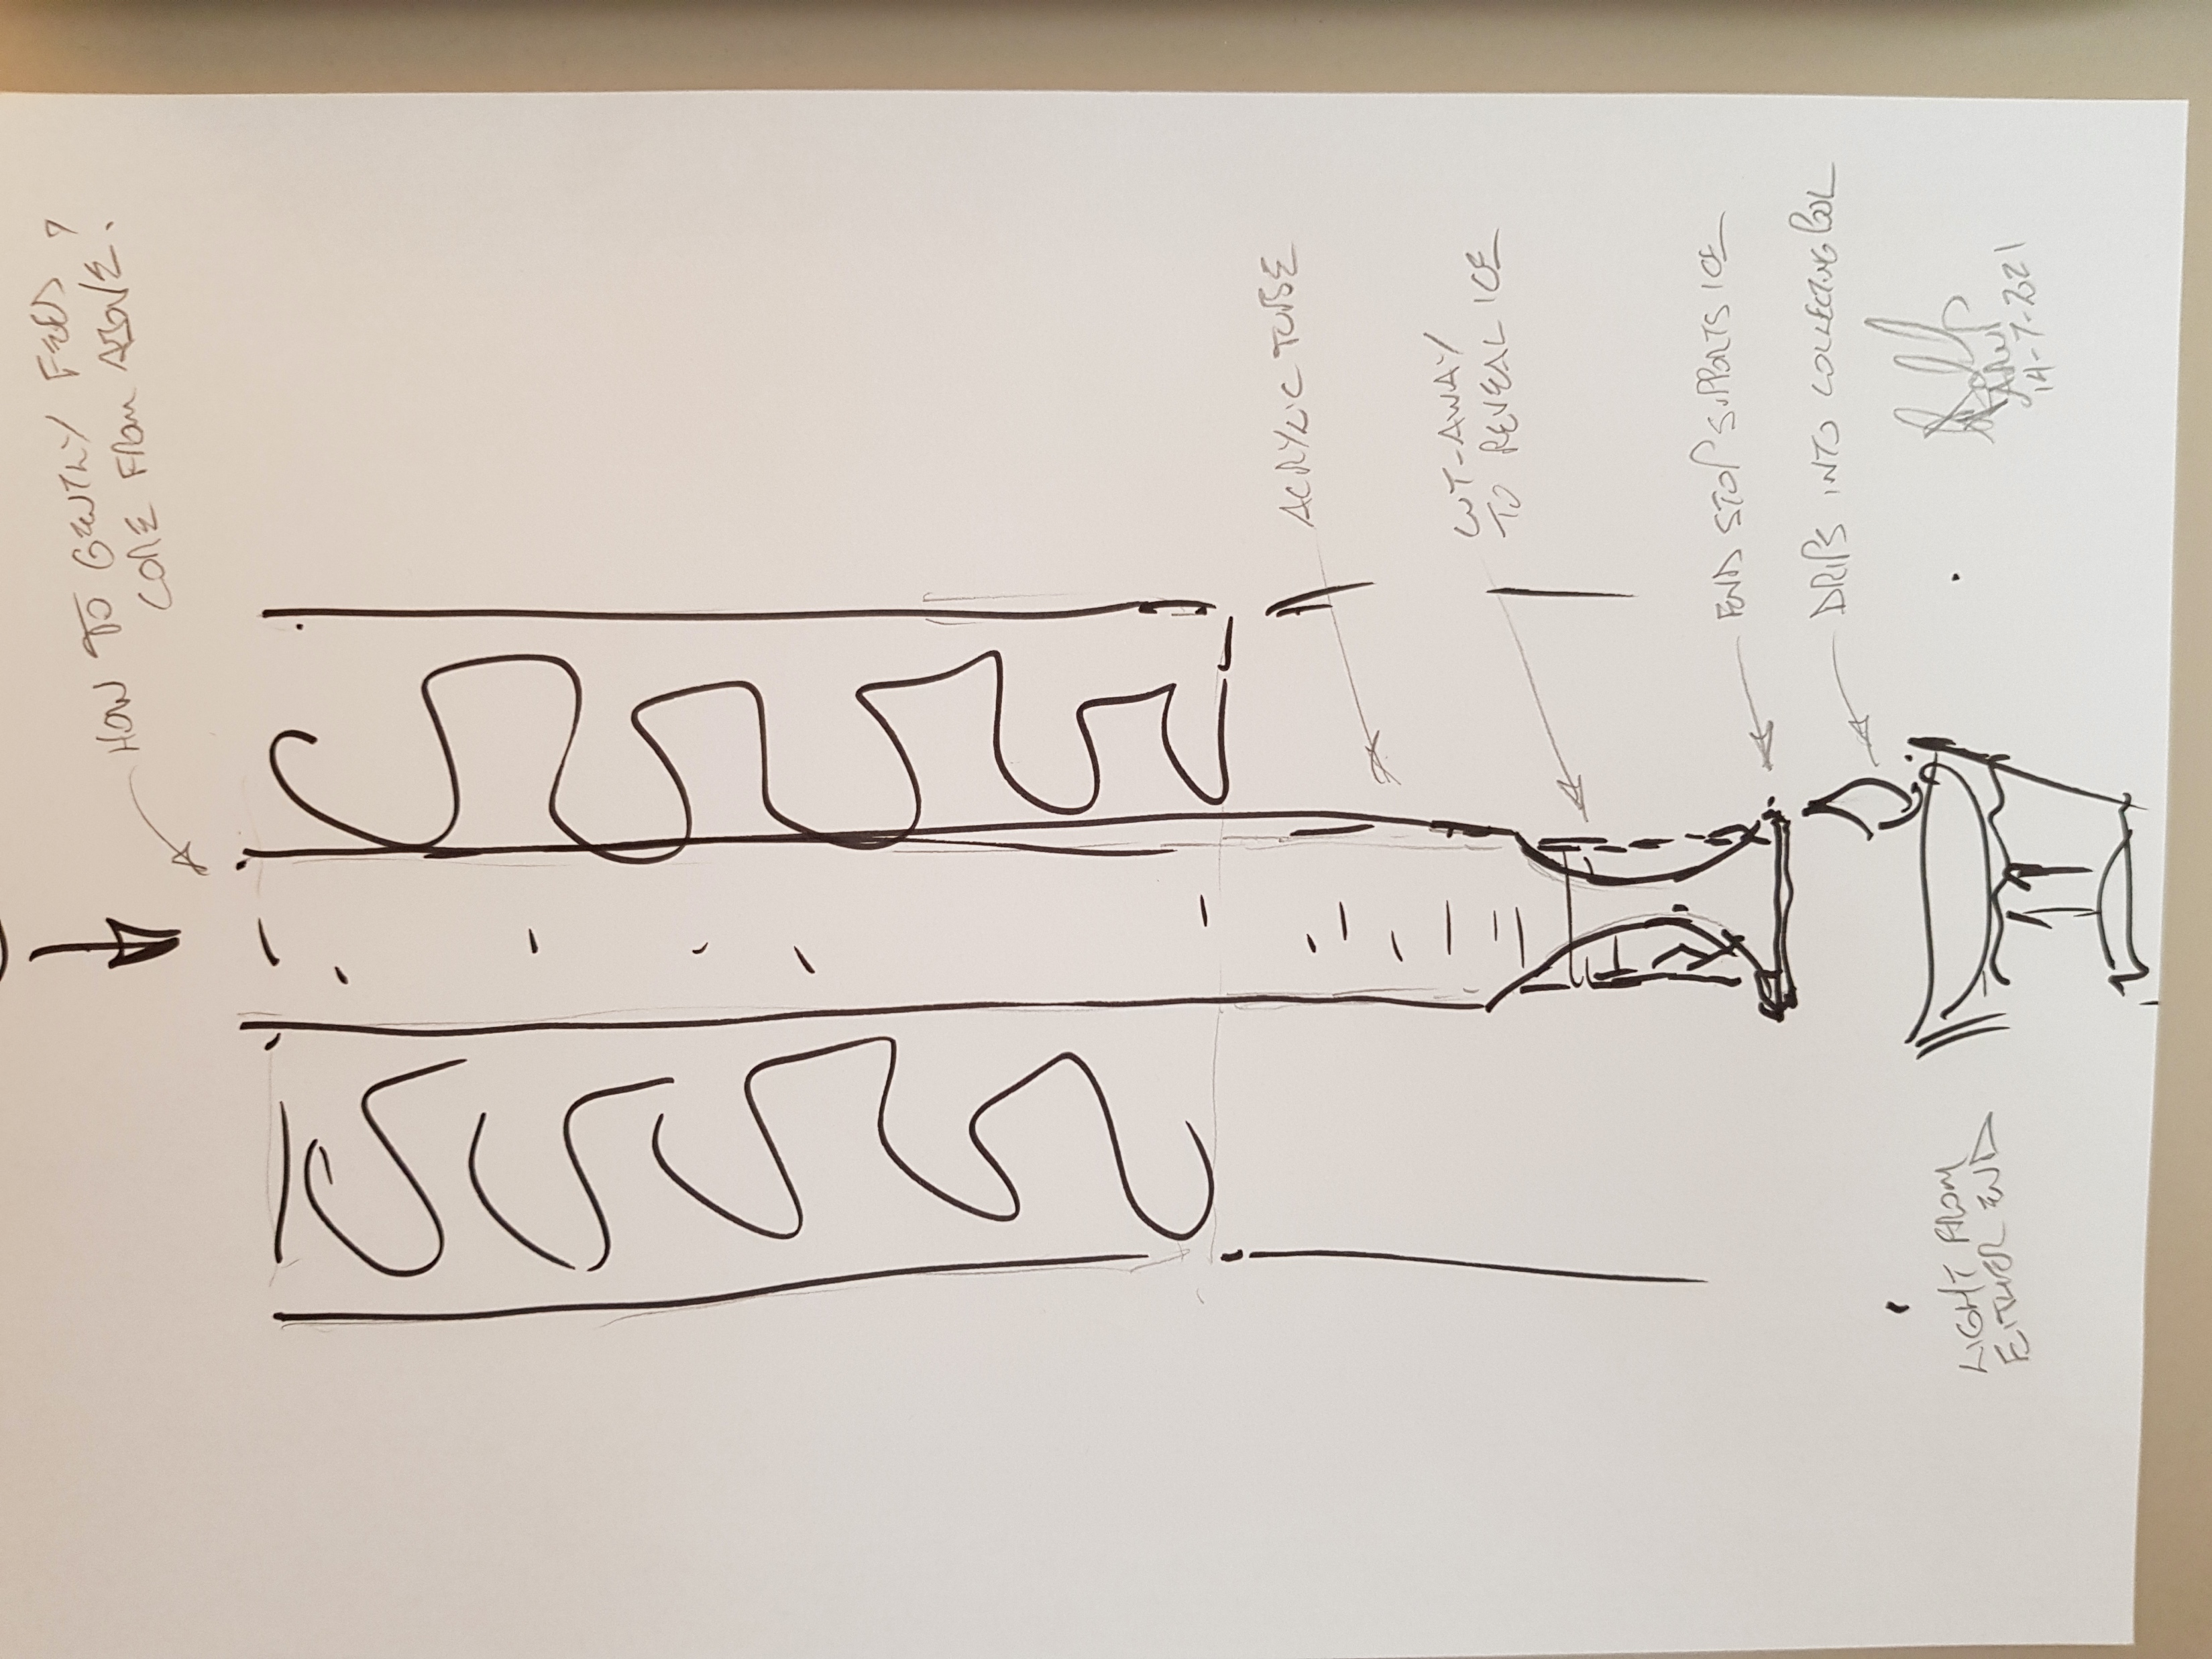 HOW TO GENTLY FEED
CORE FROM ABOVE?
ACRYLIC TUBE
CUT-AWAY
TO REVEAL ICE
END STOP SUPPORTS ICE
DRIPS INTO COLLECTING POOL
14-7-2021
LIGHT FROM
EITHER END